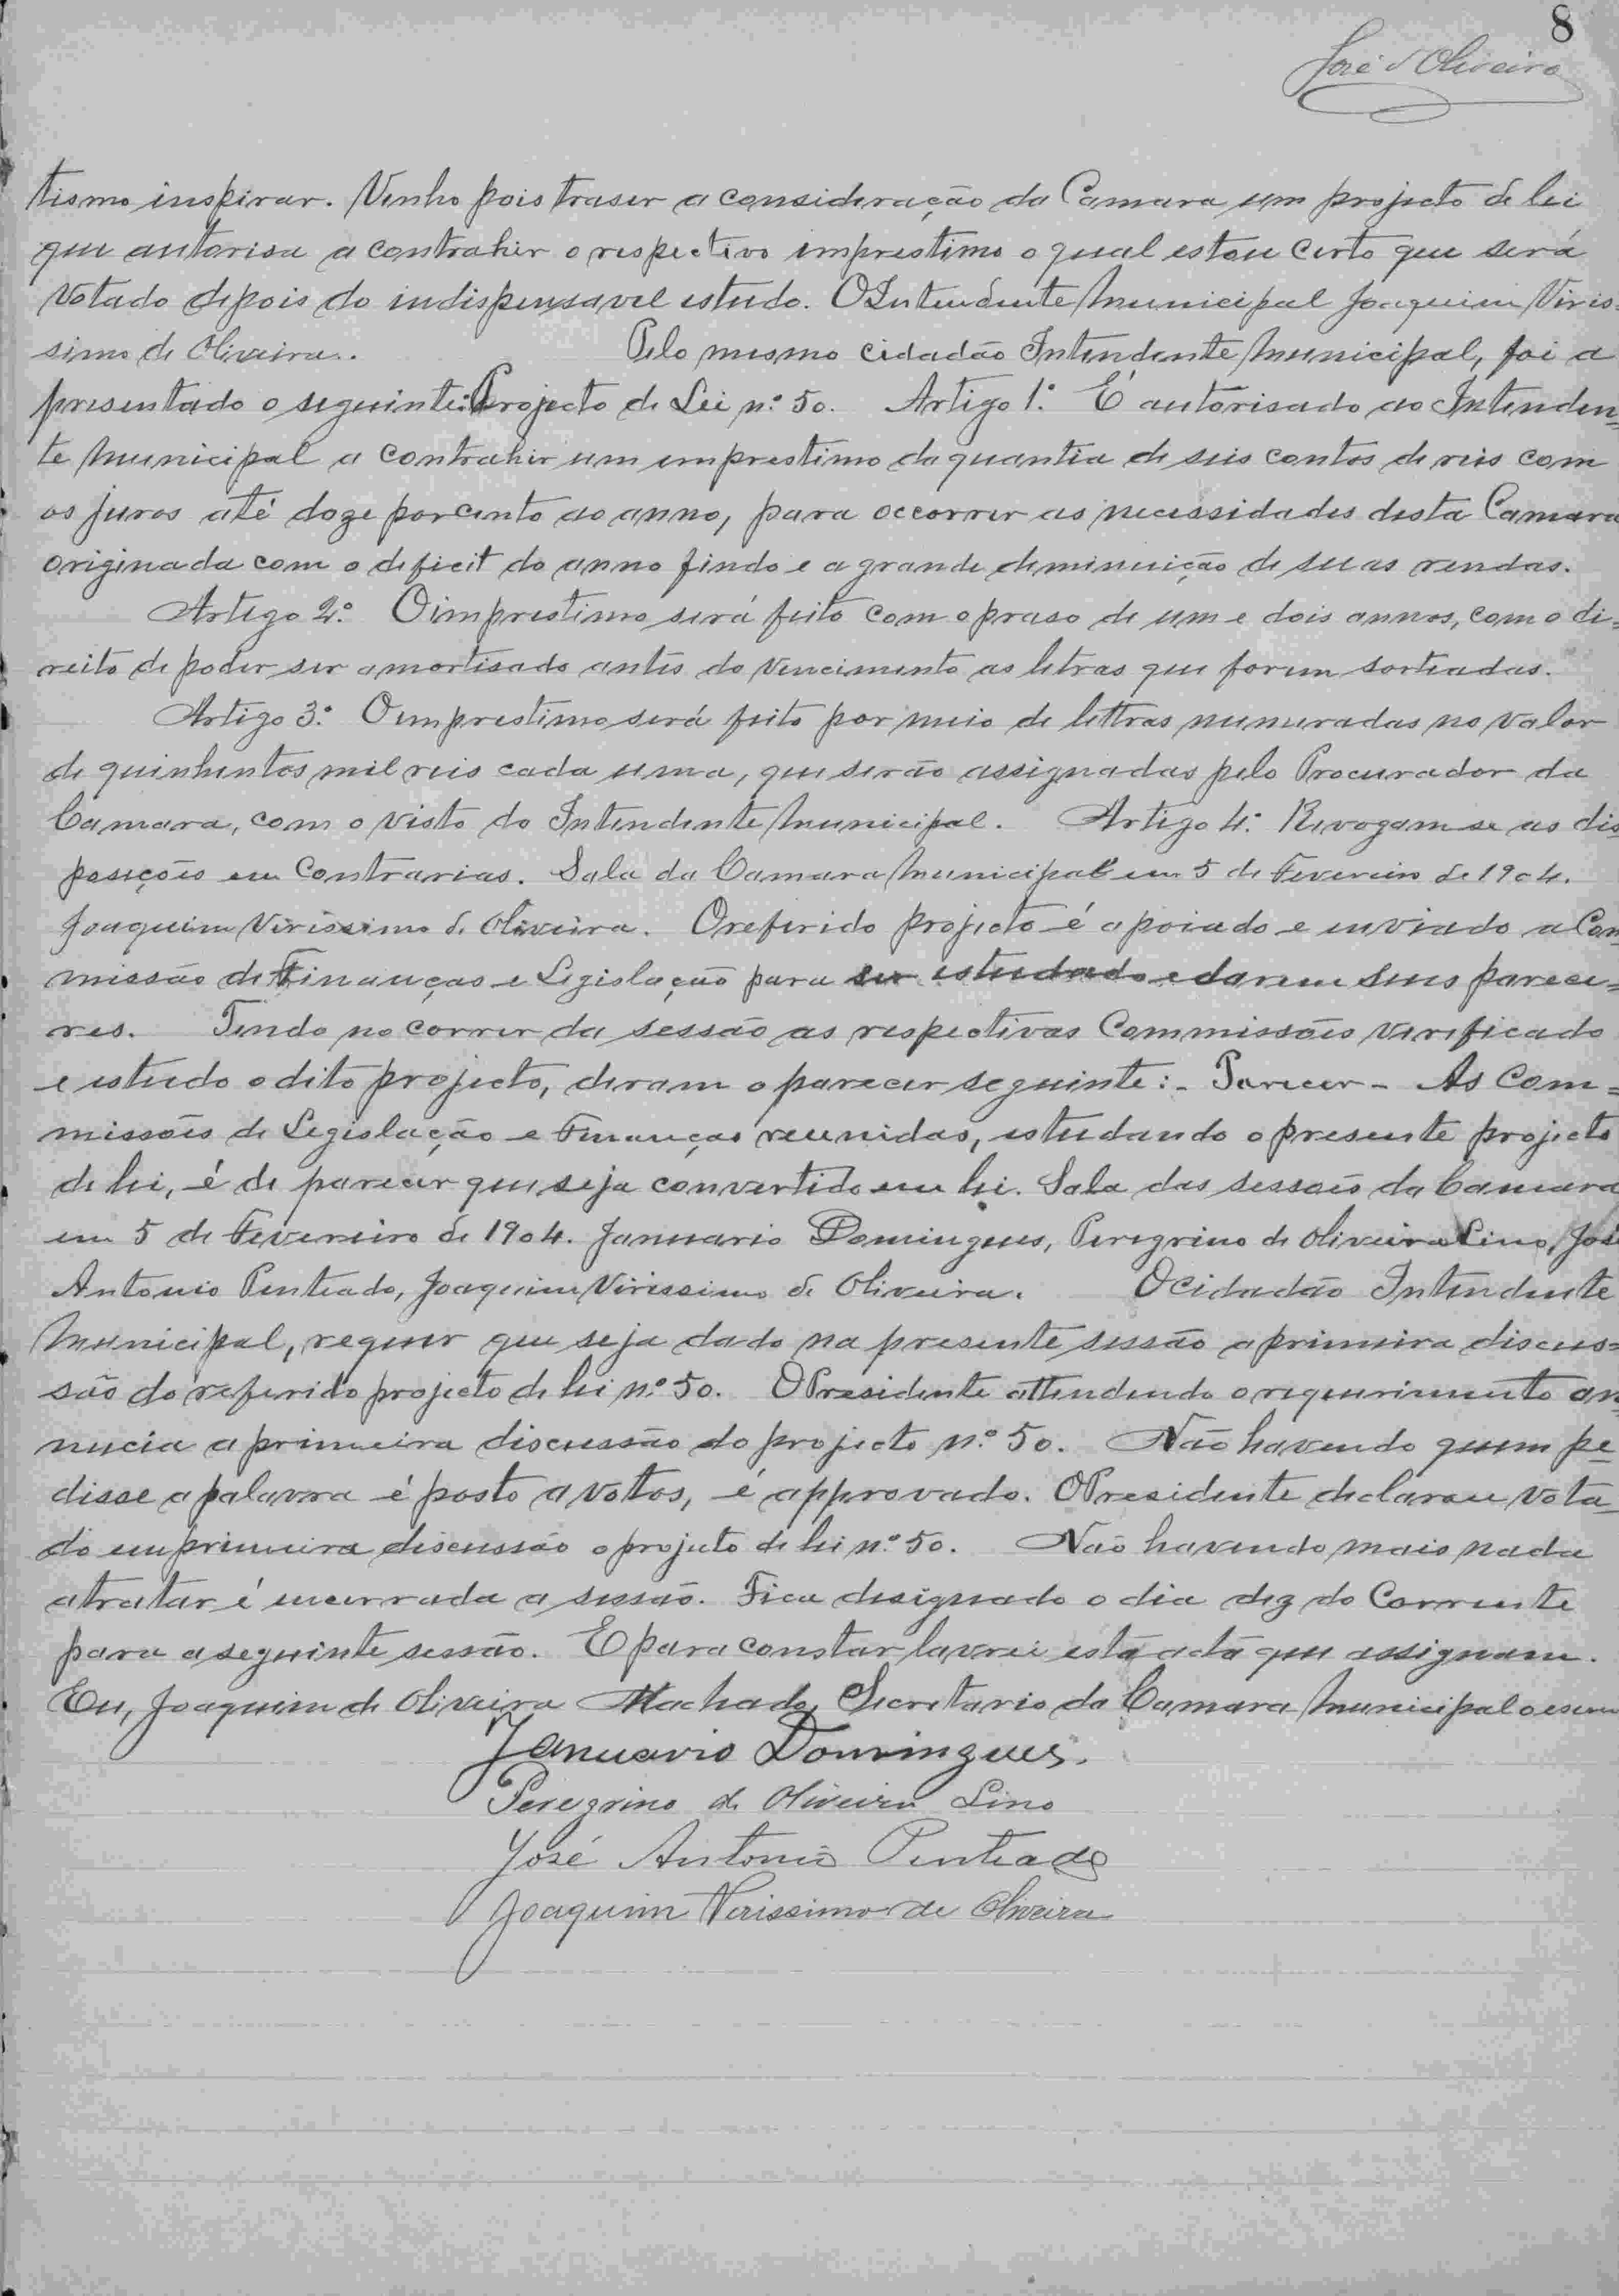 8
José d'Oliveira
tismo inspirar. Venho pois traser a consideração da Camara um projecto de lei
que autorisa a contrahir o respectivo imprestimo o qual estou certo que será
votado depois do indispensavel estudo. O Intendente Municipal Joaquim Viris-
simo de Oliveira. Pelo mesmo cidadão Intendente Municipal, foi a
presentado o seguinte: Projecto de Lei n.º 50. Artigo 1.º É autorisado ao Intenden=
te Municipal a contrahir um emprestimo da quantia de seis contos de reis com
os juros até doze por cento ao anno, para occorrer as necessidades desta Camara
originada com o deficit do anno findo e a grande deminuição de suas rendas.
Artigo 2.º O imprestimo será feito com o praso de um e dois annos, com o di=
reito de poder ser amortisado antes do vencimento as letras que forem sorteadas.
Artigo 3.º O emprestimo será feito por meio de lettras numeradas no valor
de quinhentos mil reis cada uma, que serão assignadas pelo Procurador da
Camara, com o visto do Intendente Municipal. Artigo 4.º Revogam-se as dis
posições em contrarias. Sala da Camara Municipal em 5 de Fevereiro de 1904.
Joaquim Virissimo de Oliveira. O referido projecto é apoiado e enviado a Com
missão de Finanças e Legislação para ser estudado e darem seus parece=
res. Tendo no correr da sessão as respectivas Commissões verificado
e estudo o dito projecto, deram o parecer seguinte:- Parecer- As Com=
missões de Legislação e Finanças reunidas, estudando o presente projecto
de lei, é de parecer que seja convertido em lei. Sala das sessões da Camara
em 5 de Fevereiro de 1904. Januario Domingues, Peregrino de Oliveira Lino, José
Antonio Penteado, Joaquim Virissimo de Oliveira. O cidadão Intendente
Municipal, requer que seja dado na presente sessão a primeira discus=
são do referido projecto de lei n.º 50. O Presidente attendendo o requerimento an
nucia a primeira discussão do projecto n.º 50. Não havendo quem pe
disse a palavra é posto a votos, é approvado. O Presidente declarou vota
do em primeira discussão o projecto de lei n.º 50. Não havendo mais nada
a tratar é encerrada a sessão. Fica designado o dia dez do Corrente
para a seguinte sessão. E para constar lavrei esta acta que assignam.
Eu, Joaquim de Oliveira Machado, Secretario da Camara Municipal o
Januario Domingues.
Peregrino de Oliveira Lino
José Antonio Penteado
Joaquim Virissimo de Oliveira